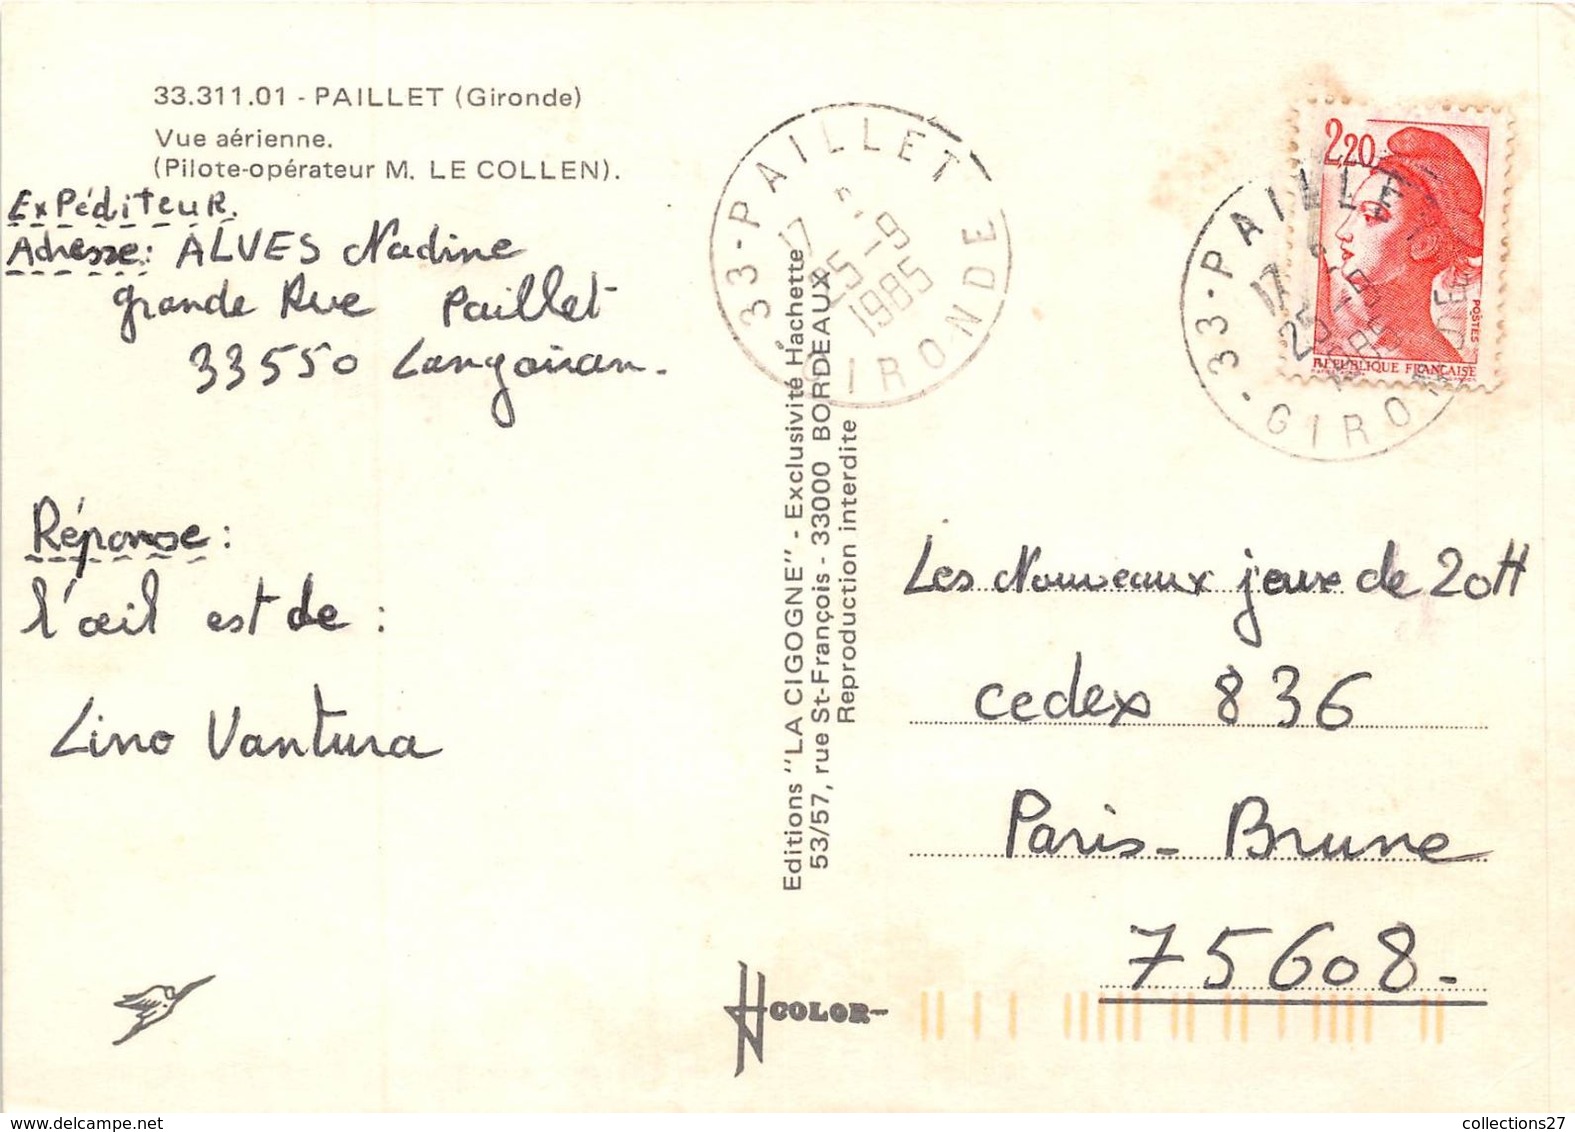 33.311.01 - PAILLET (Gironde)
Vue aérienne.
(Pilote-opérateur M. LE COLLEN).
Expéditeur.
Adresse: ALVES Nadine
grande Rue Paillet
33550 Langoiran.
Réponse:
l'œil est de :
Lino Vantura
Editions "LA CIGOGNE" - Exclusivité Hachette
53/57, rue St-François - 33000 BORDEAUX
Reproduction interdite
33 - PAILLET
17
25-9
1985
GIRONDE
2,20
POSTES
RÉPUBLIQUE FRANÇAISE
33 - PAILLET
17
25-9
1985
GIRONDE
Les Nouveaux jeux de 20H
cedex 836
Paris - Brune
75608.
COLOR
collections27